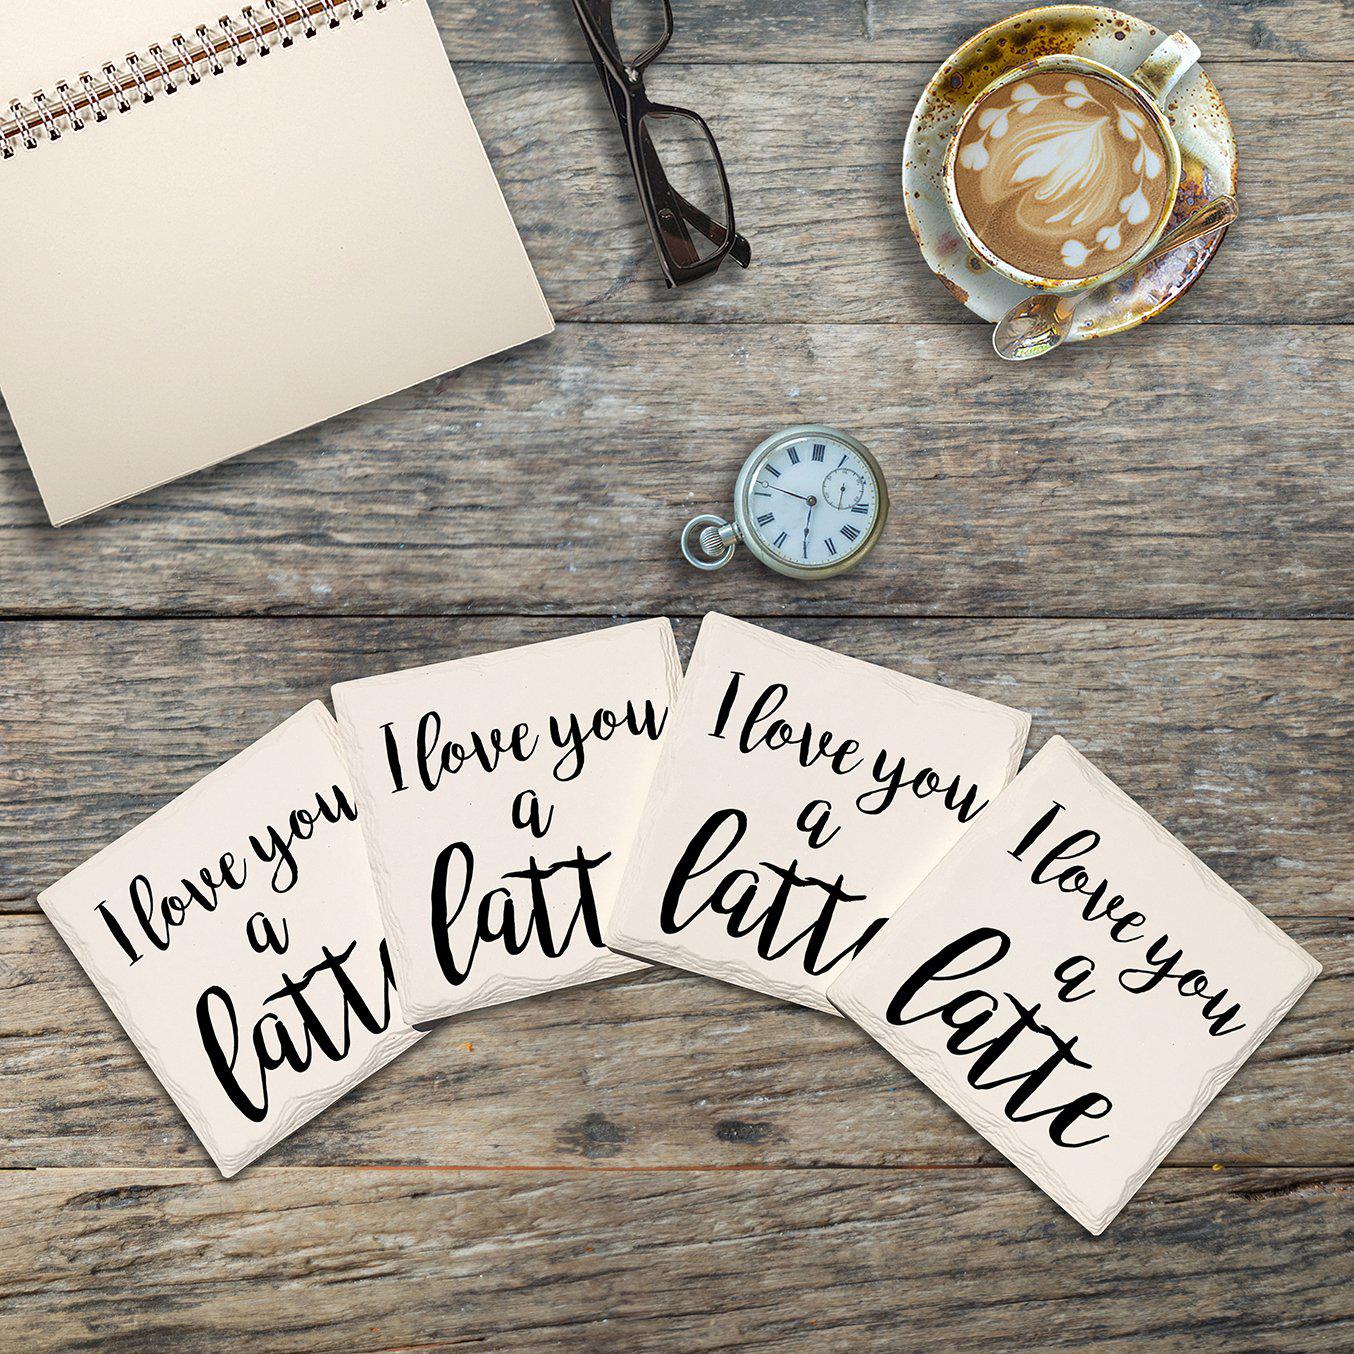 I love you
a
latte
I love you
a
latt
I love you
a
latte
I love you
a
latte